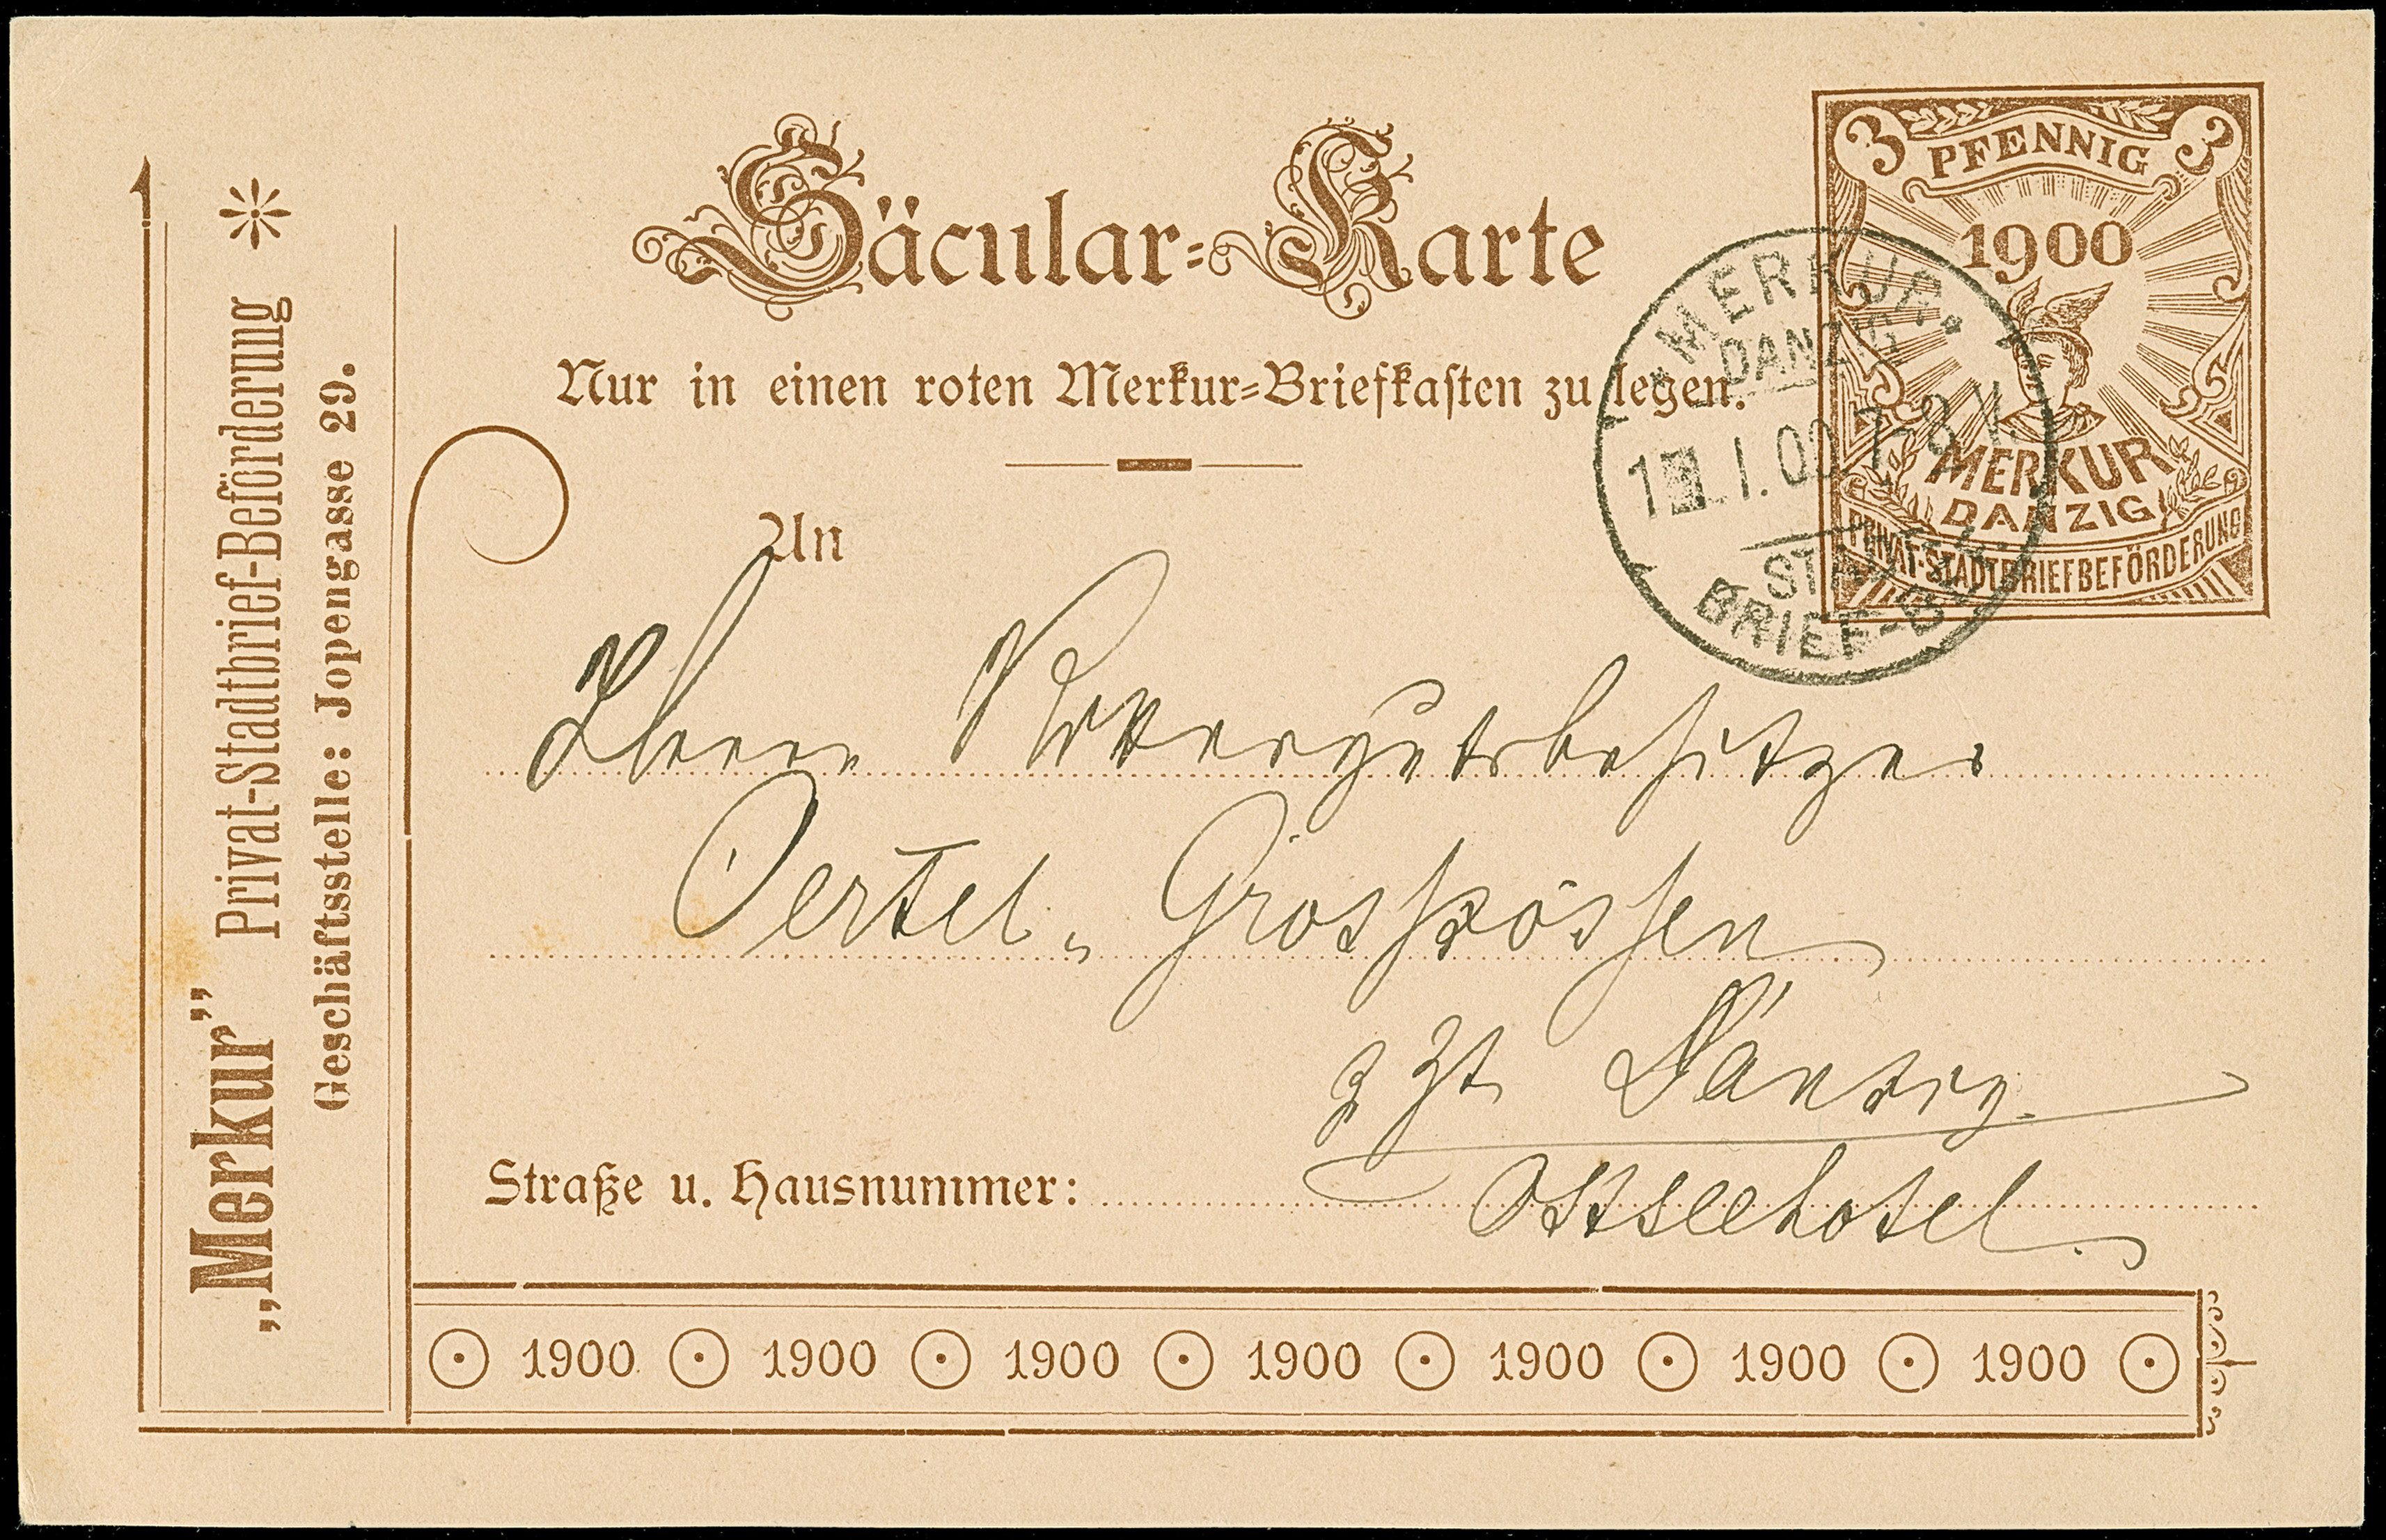 Säcular-Karte
Nur in einen roten Merkur-Briefkasten zu legen.
3 PFENNIG 3
1900
MERKUR
DANZIG
PRIVAT-STADTBRIEFBEFÖRDERUNG
MERKUR
DANZIG
1. I. 00. 7-8 V.
BRIEF-B
„Merkur” Privat-Stadtbrief-Beförderung
Geschäftsstelle: Jopengasse 29.
An
Herrn Rittergutsbesitzer
Oertel,
z Zt Danzig.
Straße u. Hausnummer: Ostseehotel.
1900 1900 1900 1900 1900 1900 1900